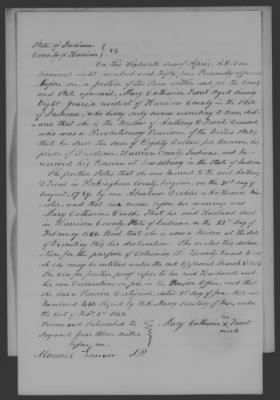 State of Indiana
County of Harrison } SS
On this Eighteenth day of April, A.D. One
thousand eight hundred and fifty, four Personally appeared
before me, a Justice of the Peace within and for the County
and State aforesaid, Mary Catharine Trout Aged Seventy
Eight years, a resident of Harrison County in the State
of Indiana, who being duly sworn according to law, declares
that she is the Widow of Anthony Trout Deceased,
who was a Revolutionary Pensioner of the United States,
that he drew the Sum of Eighty Dollars per Annum, his
place of Residence Harrison County Indiana, and he re-
ceived his Pension at New Albany in the State of Indiana
She further states that she was Married to the said Anthony
Trout in Rockingham County, Virginia, on the 31st day of
August, 1789, by one Abraham a Minis-
ter, and that her name before her marriage was
Mary Catharine That her said Husband died
in Harrison County, State of Indiana on the day of
February 1844 And that she is now a Widow at the date
of Executing this her declaration. She makes this declara-
tion for the purpose of obtaining the Bounty Land to w-
hich she may be entitled under the act approved March 3d 1855
She also for further proof refers to her said Husbands and
her own Declarations on file in the Pension Office, and that
she draws a Pension Certificate, dated day of June 1850
numbered signed by Secretary of War, under
the act of Feby 2d 1848.
Sworn and Subscribed the
day and year above written
before me
Mary Catharine X Trout
her
mark
Manuel J.P.